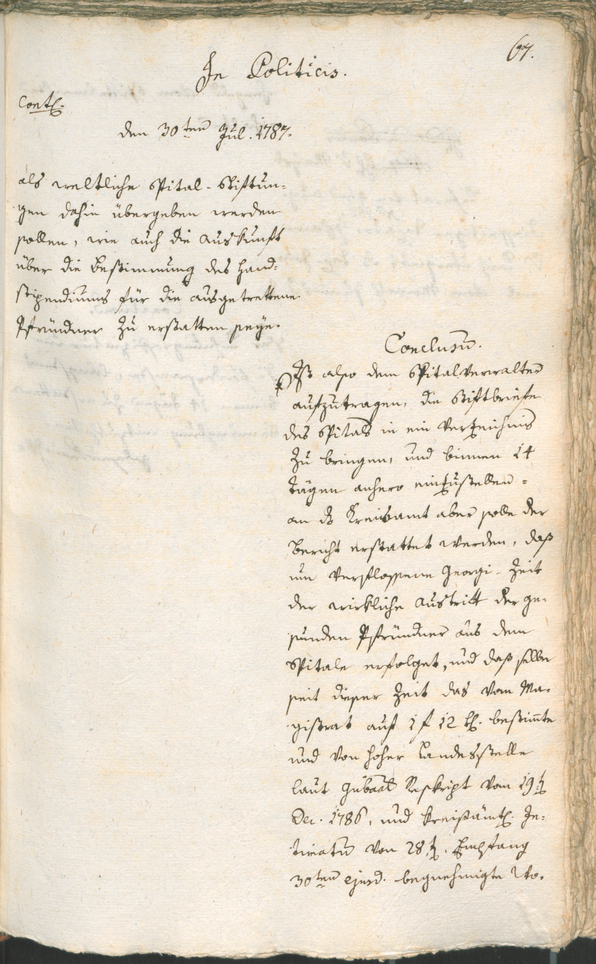 67.
In Politicis.
Cont.
den 30ten Jul. 1787.
als weltliche Spital-Stiftun-
gen dahin übergeben werden
sollen, wie auch die Auskunft
über die Bestimmung des Hand-
stipendiums für die ausgetrettene
Pfründner zu erstatten seye.
Conclusum.
Ist also dem Spitalverwalter
aufzutragen, die Stiftbriefe
des Spitals in ein Verzeichnis
zu bringen, und binnen 14
Tägen anhero einzustellen.
an ds Kreisamt aber solle der
Bericht erstattet werden, daß
um verflossene Georgi-Zeit
der wirkliche Austritt der ge-
sunden Pfründner aus dem
Spitale erfolget, und daß selbe
seit dieser Zeit das vom Ma-
gistrat auf 1 f 12 k. bestimte
und von hoher Landesstelle
laut Gubaal Reskript vom 19t
Dec. 1786, und kreisämtl. In-
timatum von 28t. Empfang
30ten ejusd. begnehmigte Wo-